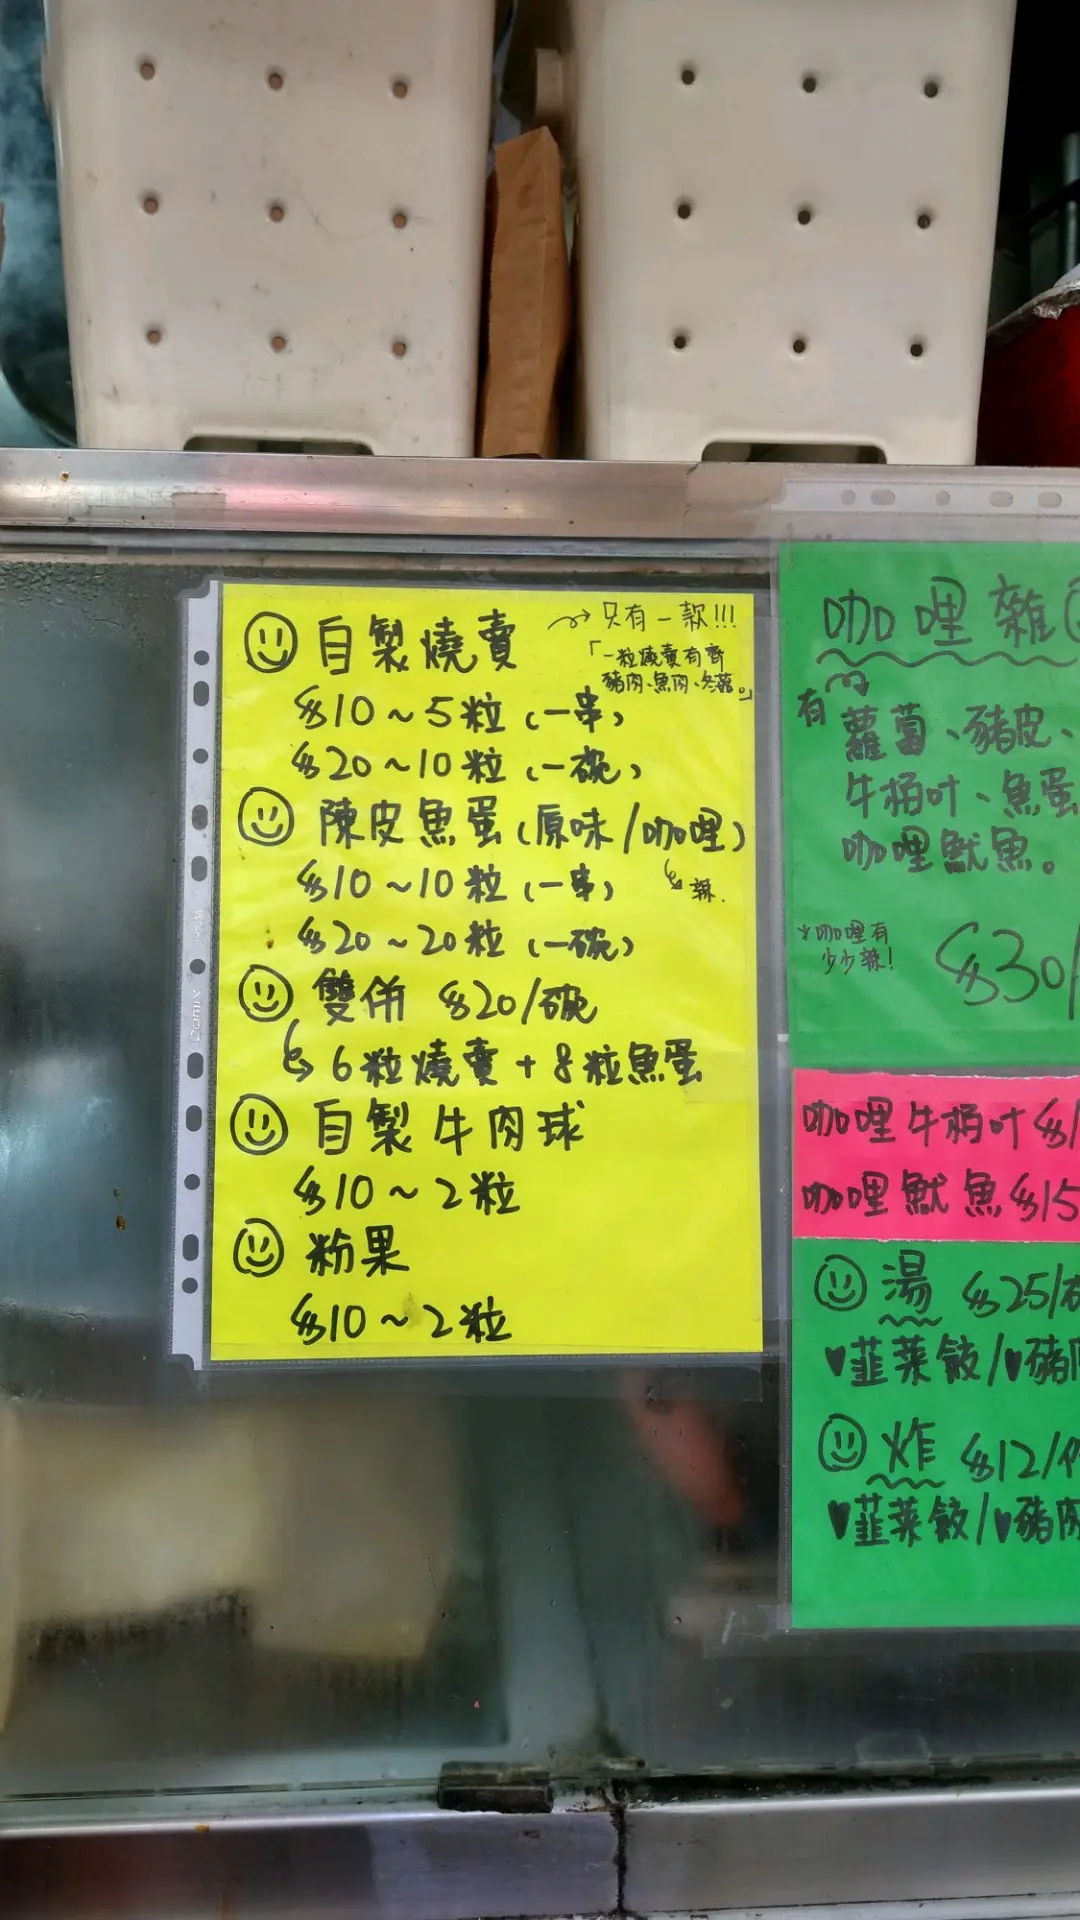 自製燒賣 → 只有一款!!!
「一粒燒賣有齊
豬肉、魚肉、冬菇。」
$10～5粒（一串）
$20～10粒（一碗）
陳皮魚蛋（原味/咖哩）
辣.
$10～10粒（一串）
$20～20粒（一碗）
雙併 $20/碗
6粒燒賣+8粒魚蛋
自製牛肉球
$10～2粒
粉果
$10～2粒
咖哩雜
有
蘿蔔、豬皮、
牛栢叶、魚蛋
咖哩魷魚。
*咖哩有
少少辣!
$30/
咖哩牛栢叶$1
咖哩魷魚$15
湯 $25/
♥韮菜餃/♥豬
炸 $12/
♥韮菜餃/♥豬肉